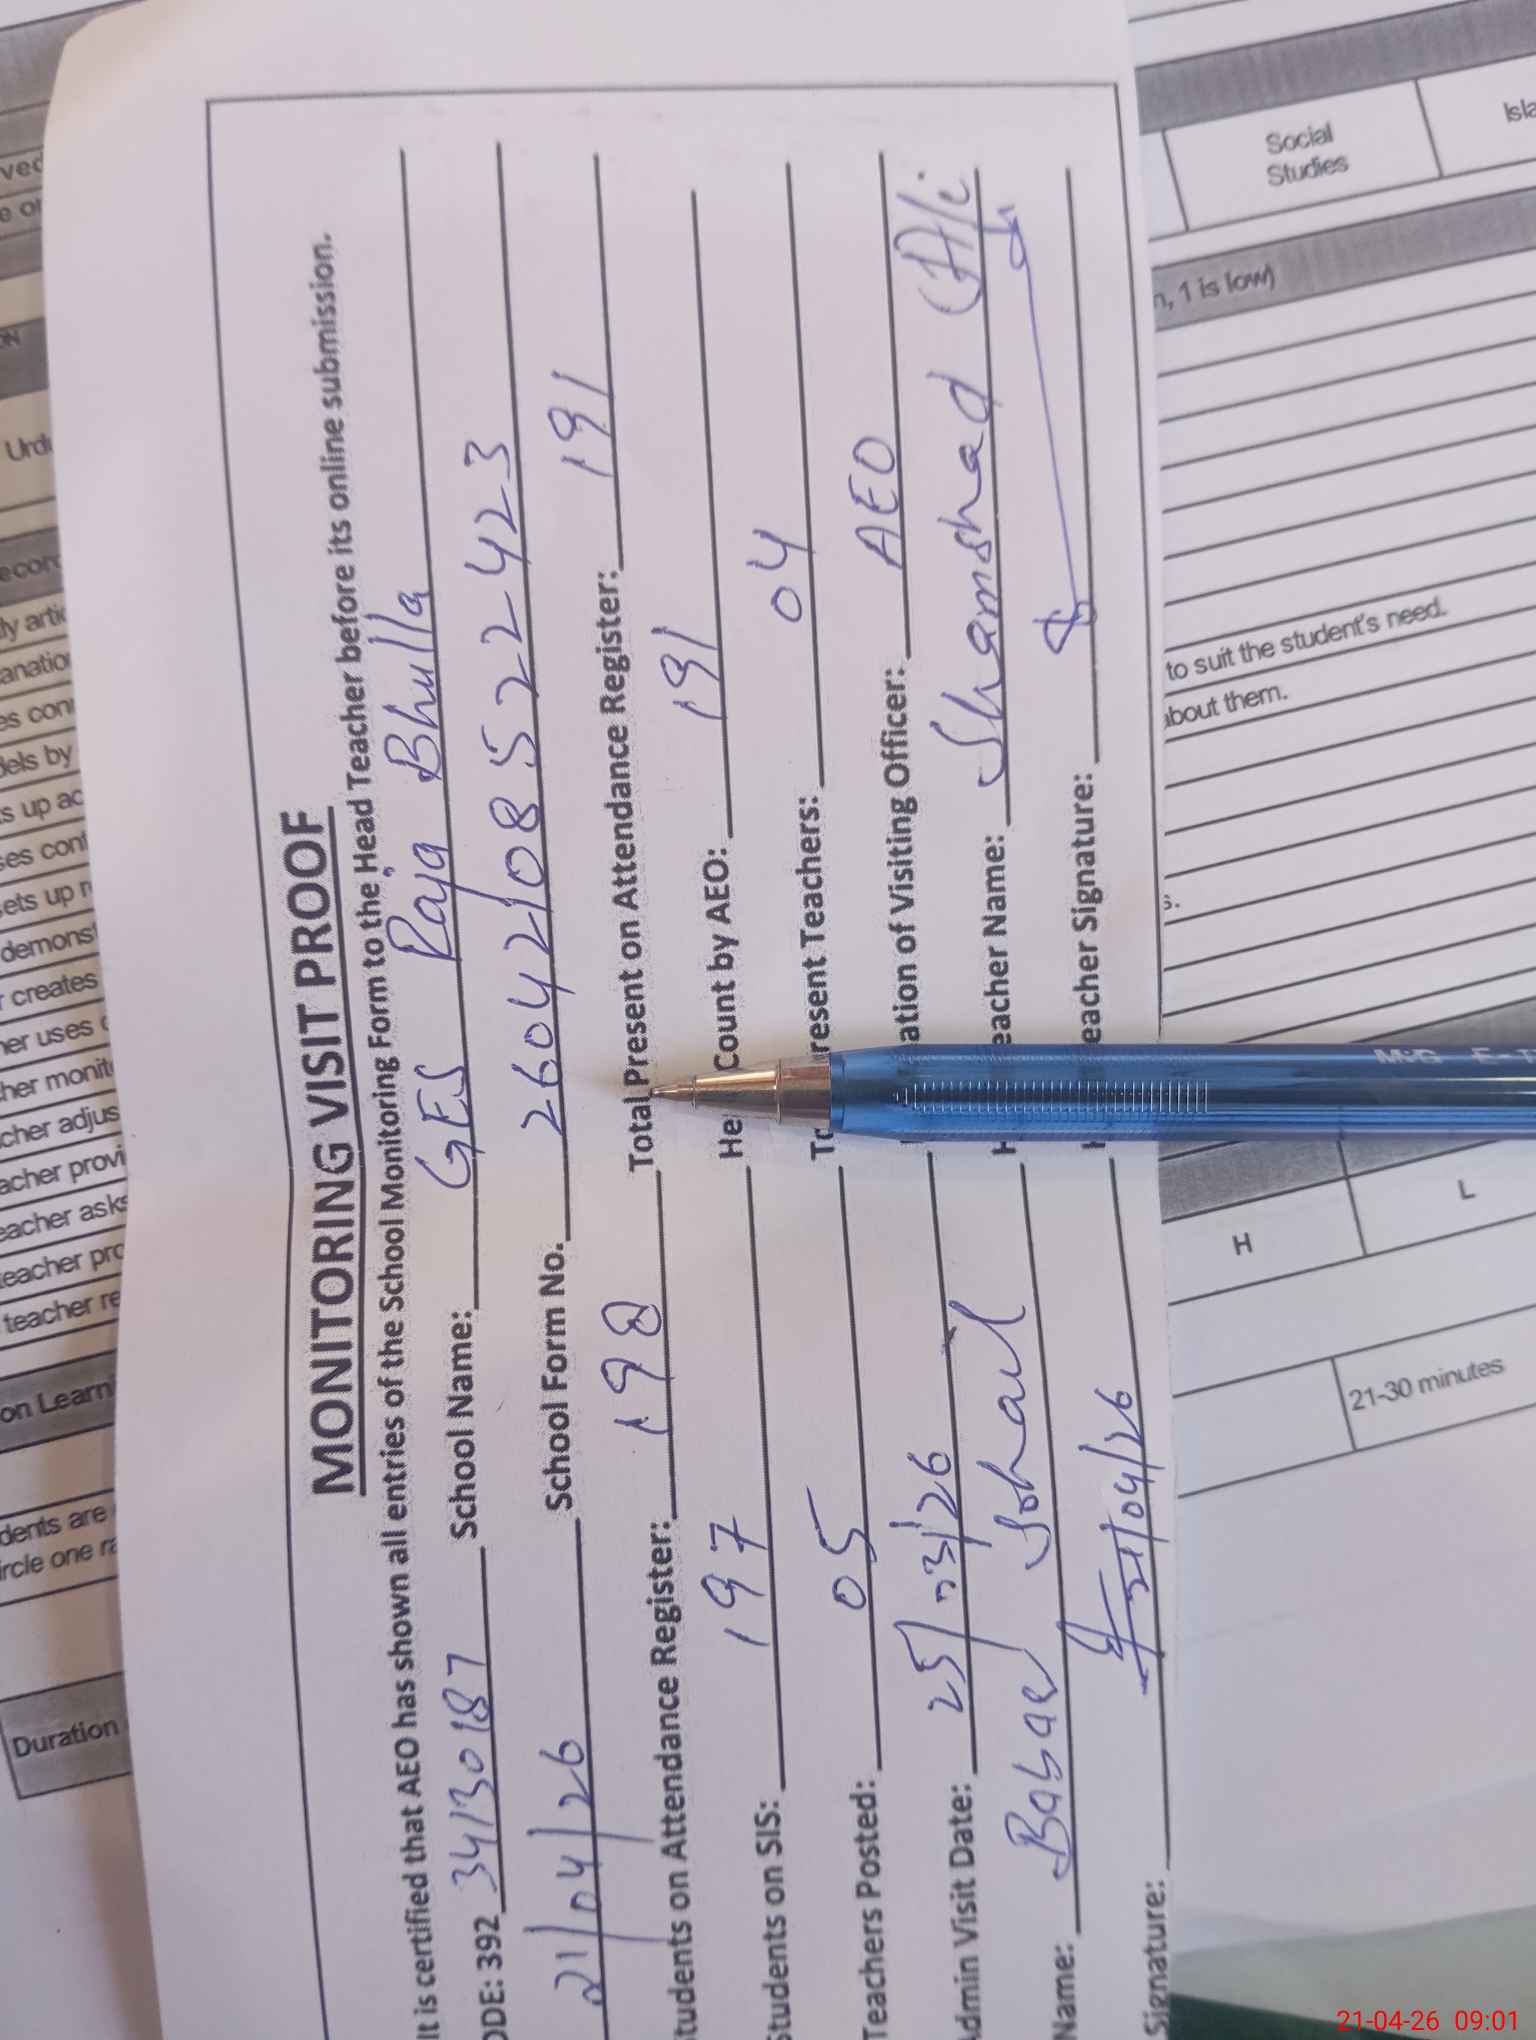 MONITORING VISIT PROOF
It is certified that AEO has shown all entries of the School Monitoring Form to the Head Teacher before its online submission.
ODE: 392 34130187 School Name: GES Raja Bhulla
21/04/26 School Form No. 26042108522423
tudents on Attendance Register: 198 Total Present on Attendance Register: 191
Students on SIS: 197 He Count by AEO: 191
Teachers Posted: 05 To resent Teachers: 04
Admin Visit Date: 25/03/26 ation of Visiting Officer: AEO
Name: Babar Sohail H eacher Name: Shamshad Ali
Signature: 21/04/26 eacher Signature:
ved
e or
ON
Urdu
econ
ly artic
anation
es con
dels by
s up ac
ses cont
sets up r
demonst
r creates
her uses
her monit
cher adjus
acher provi
eacher asks
teacher pro
teacher re
on Learni
dents are
ircle one ra
Duration
Social
Studies
Isla
h, 1 is low)
to suit the student's need.
about them.
s.
H
L
21-30 minutes
21-04-26 09:01